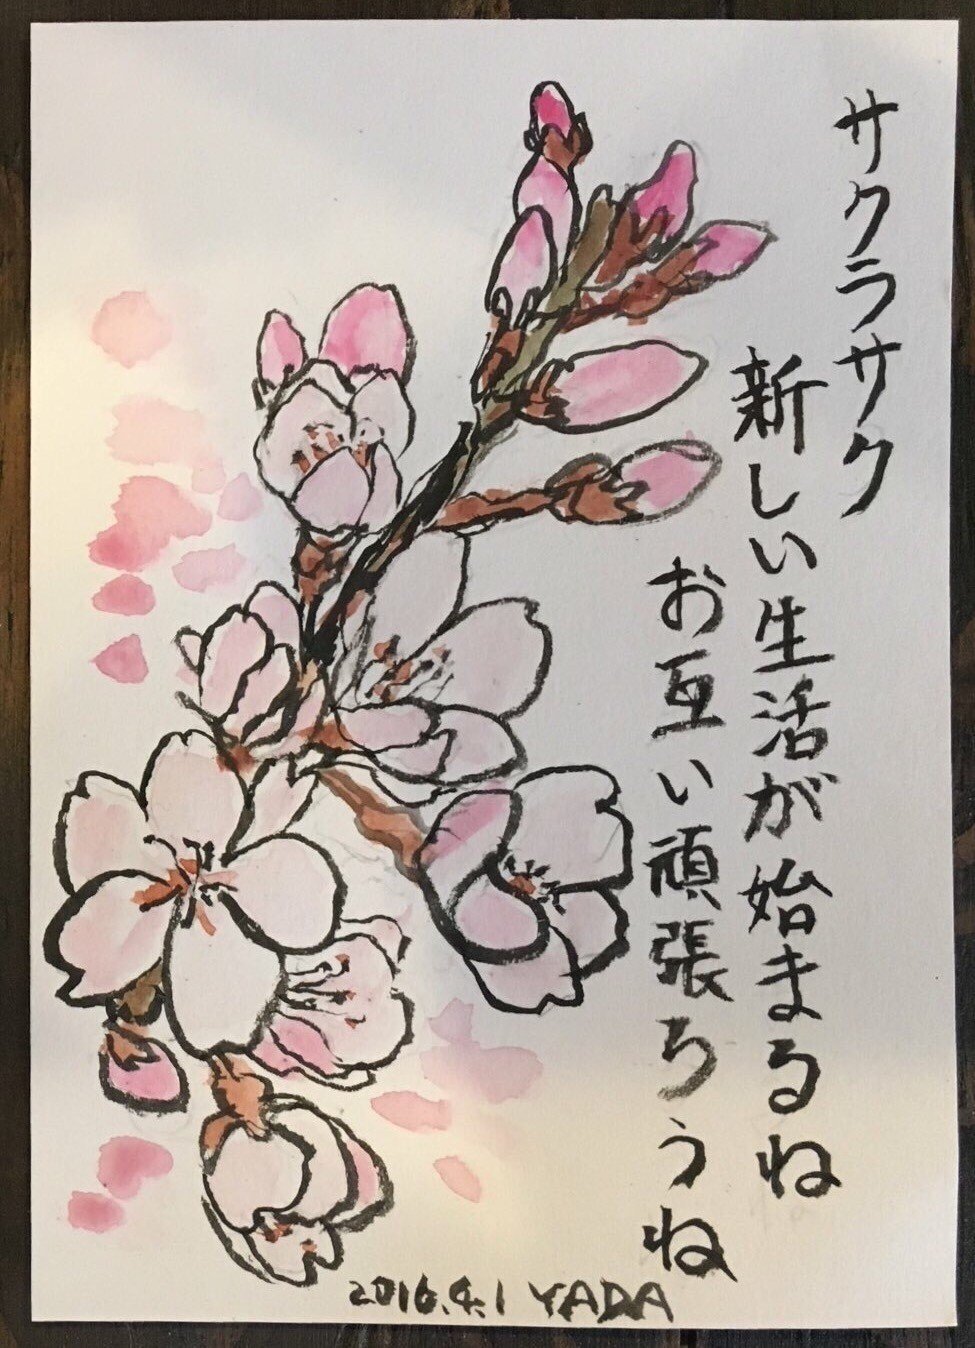 サクラサク
新しい生活が始まるね
お互い頑張ろうね
2016.4.1 YADA